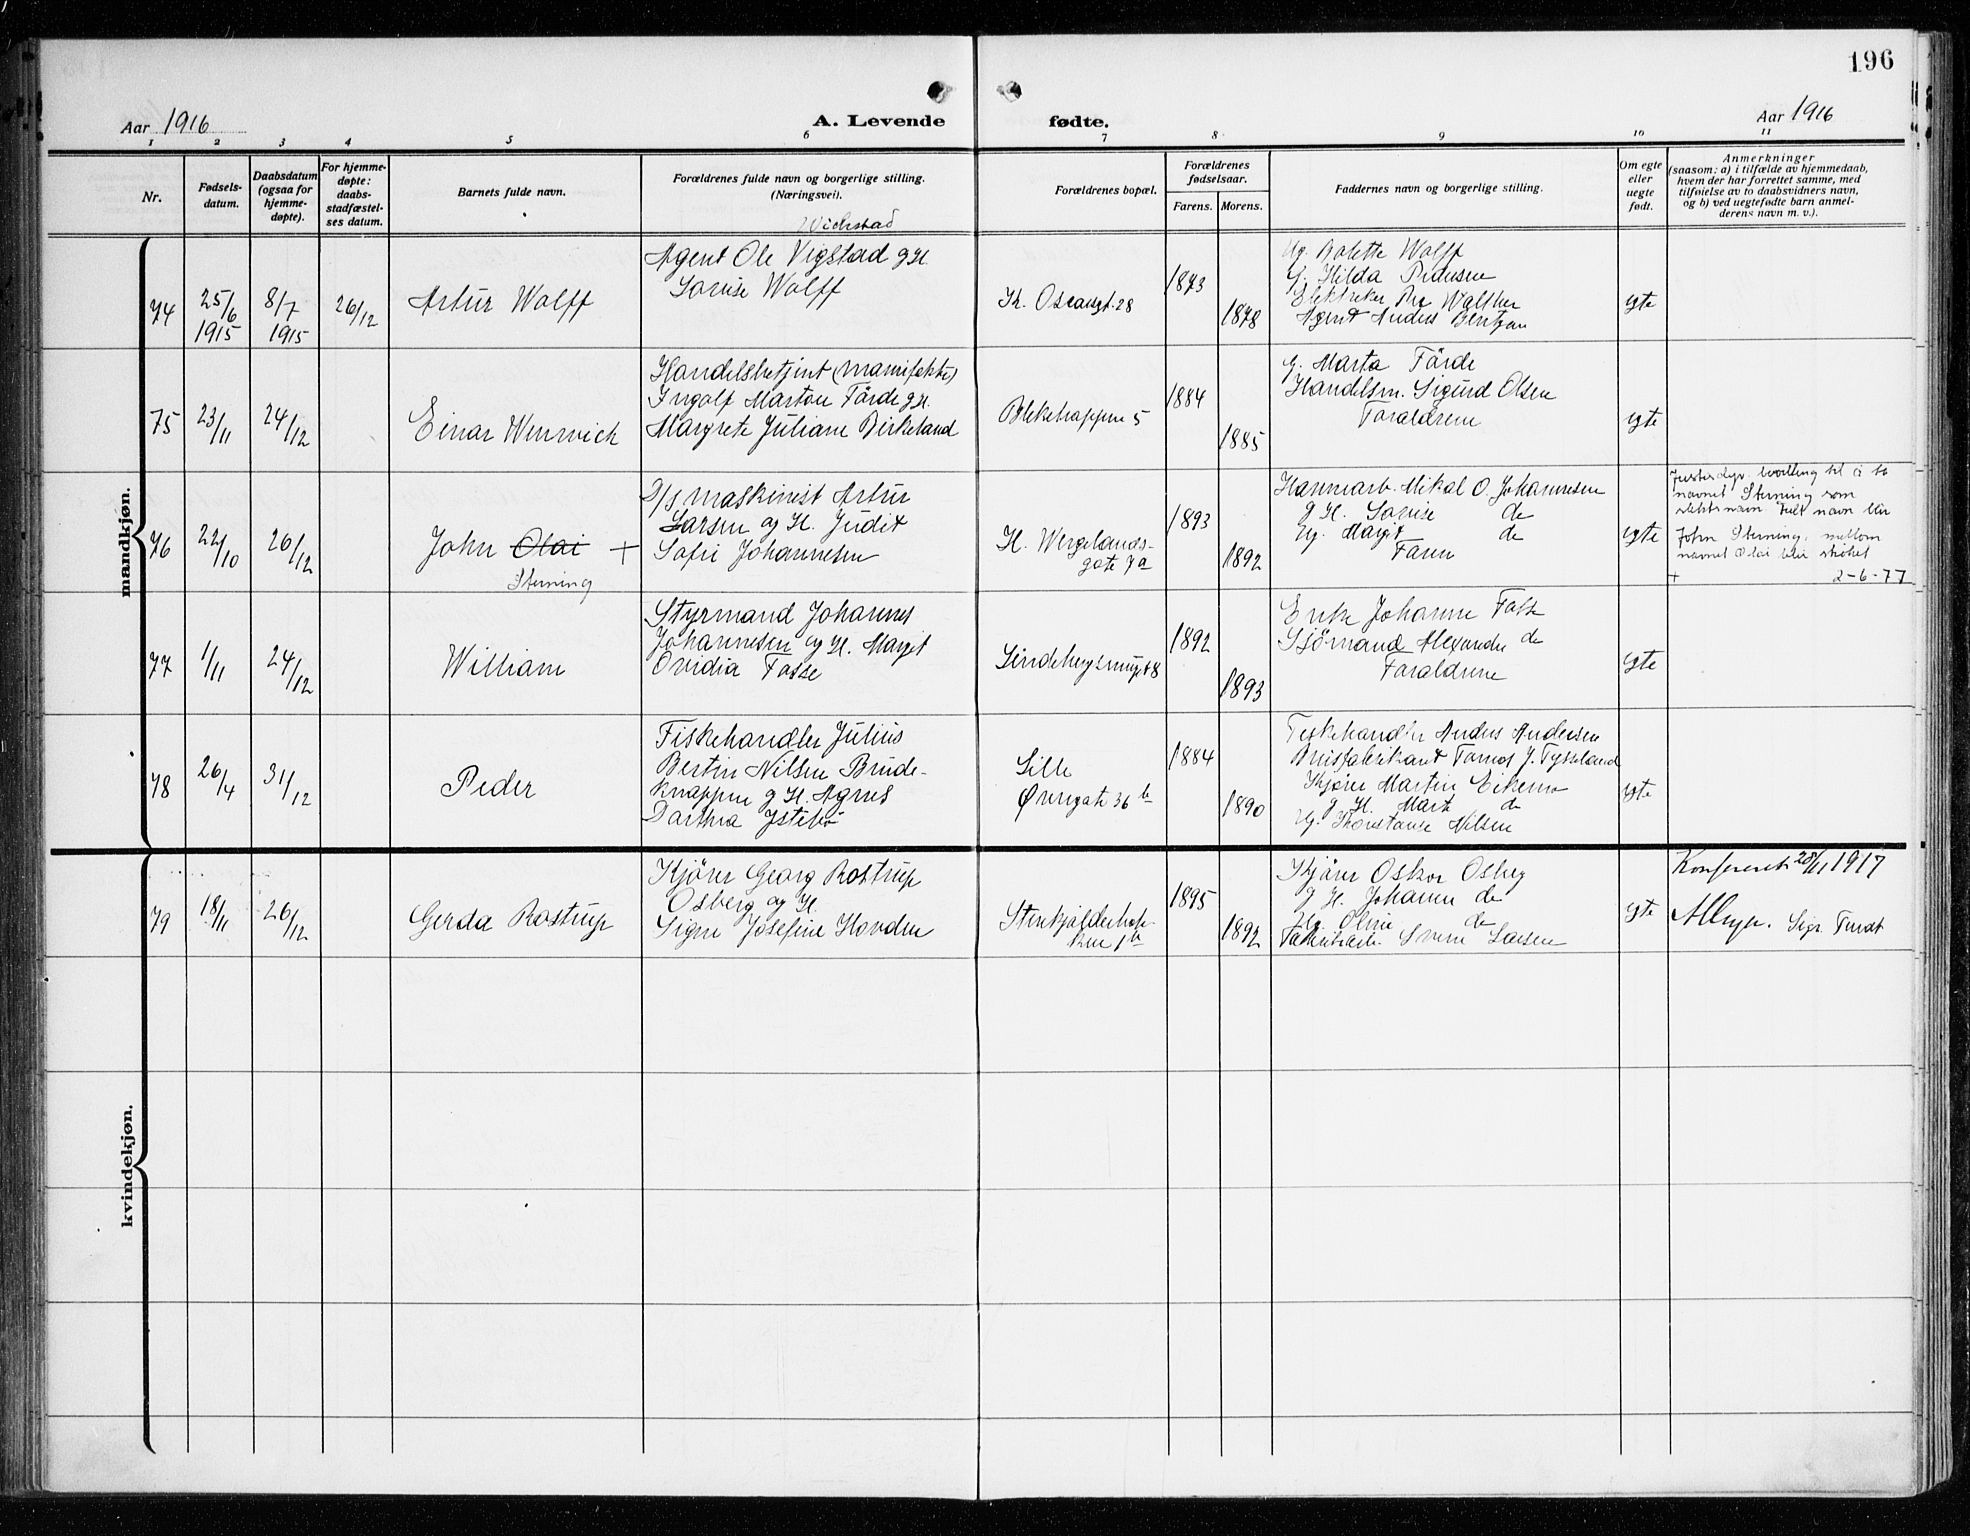 196
Aar 1916
A. Levende fødte.
Aar 1916
1 2 3 4 5 6 7 8 9 10 11
Nr.
Fødsels-
datum.
Daabsdatum
(ogsaa for
hjemme-
døpte).
For hjemme-
døpte:
daabs
stadfæstel-
ses datum.
Barnets fulde navn.
Forældrenes fulde navn og borgerlige stilling.
(Næringsvei).
Forældrenes bopæl.
Forældrenes
fødselsaar.
Farens. Morens.
Faddernes navn og borgerlige stilling.
Om egte
eller
uegte
født.
Anmerkninger
(saasom: a) i tilfælde av hjemmedaab,
hvem der har forrettet samme, med
tilføielse av to daabsvidners navn,
og b) ved uegtefødte barn anmel-
derens navn m. v.).
mandkjøn.
74
25/6
1915
8/7
1915
26/12
Artur Wolff
Wichstad
Agent Ole Vigstad g H.
Lovise Wolff
K. Oscarsgt. 28
1873
1878
Ug. Bolette Wolff
G. Hilda Pedersen
Elektriker Walther
Agent Anders Bentzen
egte
75
23/11
24/12
Einar Wenwick
Handelsbetjent (manufaktur)
Ingolf Marton Førde g H.
Margrete Juliane Birkeland
Blekehappen 5
1884
1885
G. Marta Førde
Handelsm. Sigurd Olsen
Forældrene
egte
76
22/10
26/12
John Olai +
Sterning
D/s maskinist Artur
Larsen og H. Judit
Sofie Johannesen
H. Wergelands-
gate 7a
1893
1892
Havnearb. Mikal O. Johannesen
g H. Lovise do
Ug. Margit do
Faren
egte
Justisdep. bevilling til å ta
navnet Sterning som
slektsnavn. Fullt navn blir
John Sterning, mellom
navnet Olai blir strøket
+ 2-6-77
77
1/11
24/12
William
Styrmand Johannes
Johannesen og H. Margit
Ovidia Fosse
Lindebergsmuget 8
1892
1893
Enke Johanne Fosse
Sjømand Alexander do
Forældrene
egte
78
26/4
31/12
Peder
Fiskehandler Julius
Bertin Nilsen Brude-
knappen g H. Agnes
Darthea Istebø
Lille
Øvregate 36 b
1884
1890
Fiskehandler Anders Andersen
Brusfabrikant Tomas J. Tysseland
Kjører Martin Eikemo
g H. Marta do
Ug. Konstanse Nilsen
egte
kvindekjøn.
79
18/11
26/12
Gerda Rostrup
Kjører Georg Rostrup
Osberg og H.
Signe Josefine Hovden
Stenkjælderbak-
ken 1 b
1895
1892
Kjører Oskar Osberg
g H. Johanne do
Ug. Oline do
Fabrikarb. Sverre Larsen
egte
Konfereret 28/11 1917
Sigr. Fundt